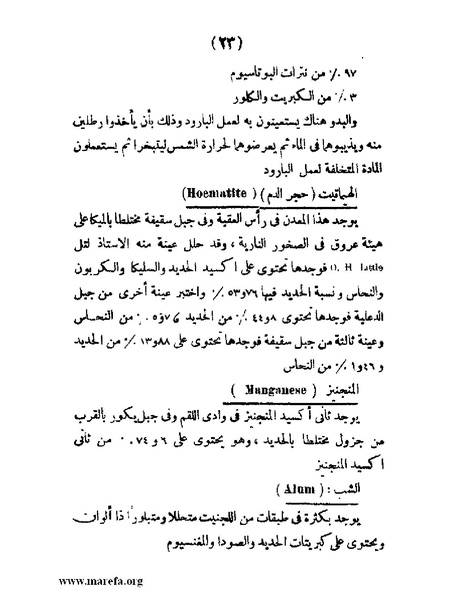 (٢٣)
٩٧ ٪ من نترات البوتاسيوم
٣ ٪ من الكبريت والكلور
والبدو هناك يستعينون به لعمل البارود وذلك بأن يأخذوا رطلين
منه ويذيبوها فى الماء ثم يعرضوها لحرارة الشمس ليتبخرا ثم يستعملون
المادة المتخلفة لعمل البارود
الهيماتيت (حجر الدم) (Hoematite)
يوجد هذا المعدن فى رأس العقبة وفى جبل سقيفة مختلطا بالميكا على
هيئة عروق فى الصخور النارية ، وقد حلل عينة منه الاستاذ لتل
H. Little فوجدها تحتوى على اكسيد الحديد والسليكا والكربون
والنحاس ونسبة الحديد فيها ٧٦و٥٣ ٪ واختبر عينة أخرى من جبل
الدعلية فوجدها تحتوى ٨و٤٤ ٪ من الحديد ٧٦و٥ ٪ من النحاس
وعينة ثالثة من جبل سقيفة فوجدها تحتوى على ٨٨و١٣ ٪ من الحديد
و ٤٦و١ ٪ من النحاس
المنجنيز (Manganese)
يوجد ثانى أكسيد المنجنيز فى وادى اللقم وفى جبل يكور بالقرب
من جزول مختلطا بالحديد ، وهو يحتوى على ٦و٧٤ ٪ من ثانى
اكسيد المنجنيز
الشب : (Alum)
يوجد بكثرة فى طبقات من اللجنيت متحللا ومتبلورا ذا ألوان
ويحتوى على كبريتات الحديد والصودا والمغنسيوم
www.marefa.org